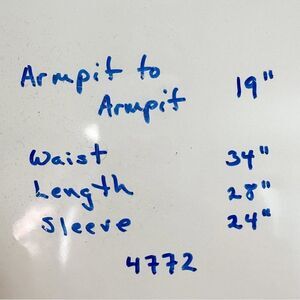 Armpit to
Armpit 19"
Waist 34"
Length 28"
Sleeve 24"
4772